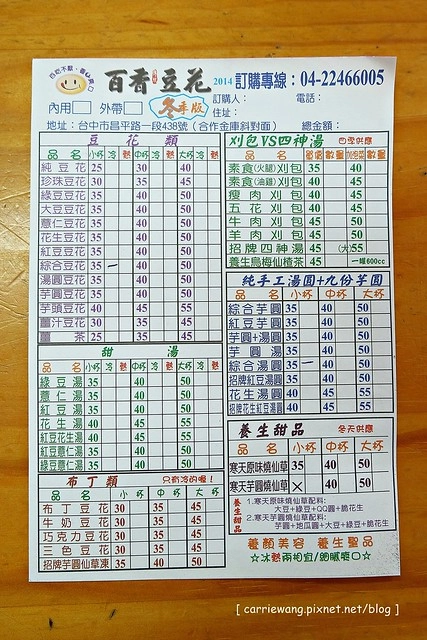 百香豆花 2014 冬季版
訂購專線：04-22466005
內用 外帶
訂購人： 電話：
住址：
地址：台中市昌平路一段438號（合作金庫斜對面） 總金額：
豆花類
品名 小杯 冷 熱 中杯 冷 熱 大杯 冷 熱
純豆花 25 30 40
珍珠豆花 30 35 45
綠豆豆花 35 40 50
大豆豆花 35 40 50
薏仁豆花 35 40 50
花生豆花 35 40 50
紅豆豆花 35 40 50
綜合豆花 35 40 50
湯圓豆花 35 40 50
芋圓豆花 35 40 50
芋頭豆花 40 45 55
薑汁豆花 30 35 45
薑茶 25 35 45
甜湯
品名 小杯 冷 熱 中杯 冷 熱 大杯 冷 熱
綠豆湯 35 40 50
薏仁湯 35 40 50
紅豆湯 35 40 50
花生湯 40 45 55
紅豆花生湯 40 45 55
紅豆薏仁湯 35 40 50
綠豆薏仁湯 35 40 50
布丁類 只有冷的喔！
品名 小杯 中杯 大杯
布丁豆花 30 35 45
牛奶豆花 30 35 45
巧克力豆花 30 35 45
三色豆花 30 35 45
招牌芋圓仙草凍 35 40 50
刈包VS四神湯 四季供應
品名 單個 數量 加泡菜 數量
素食(火腿)刈包 35 40
素食(油雞)刈包 40 45
瘦肉刈包 40 45
五花刈包 40 45
牛肉刈包 45 50
羊肉刈包 45 50
招牌四神湯 45 (大)55
養生烏梅仙楂茶 45 一罐600cc
純手工湯圓+九份芋圓
品名 小杯 中杯 大杯
綜合芋圓 35 40 50
紅豆芋圓 35 40 50
芋圓+湯圓 35 40 50
芋圓湯 35 40 50
綜合湯圓 35 40 50
招牌紅豆湯圓 35 40 50
花生湯圓 40 45 55
招牌花生紅豆湯圓 40 45 55
養生甜品 冬天供應
品名 小杯 中杯 大杯
寒天原味燒仙草 35 40 50
寒天芋圓燒仙草 40 50
養生甜品
1.寒天原味燒仙草配料：
大豆+綠豆+QQ圓+脆花生
2.寒天芋圓燒仙草配料：
芋圓+地瓜圓+大豆+綠豆+脆花生
養顏美容 養生聖品
☆冰熱兩相宜/細膩爽口☆
[ carriewang.pixnet.net/blog ]